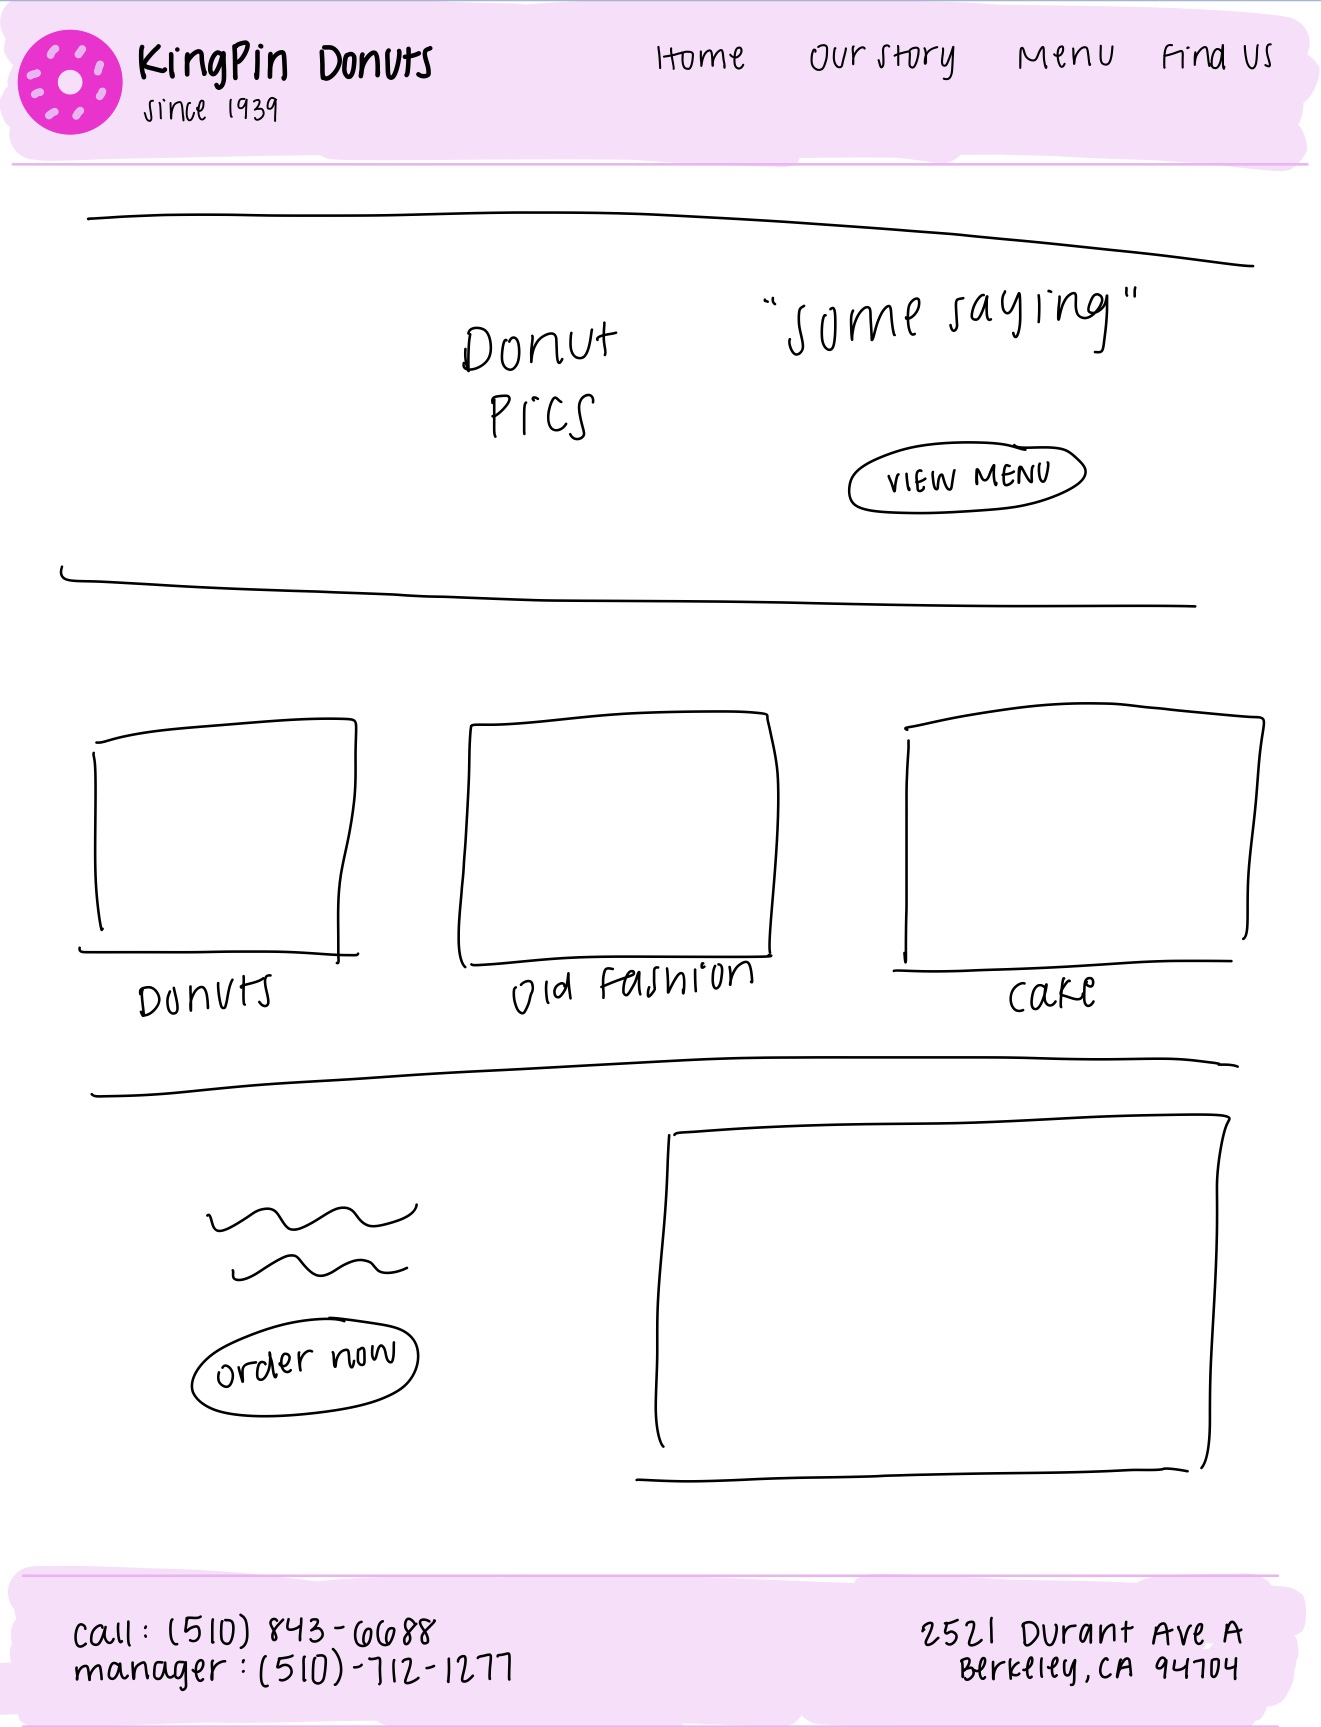 KingPin Donuts
since 1939
Home Our Story Menu Find Us
Donut
Pics
"some saying"
VIEW MENU
Donuts
Old Fashion
Cake
order now
call: (510) 843-6688
manager: (510)-712-1277
2521 Durant Ave A
Berkeley, CA 94704